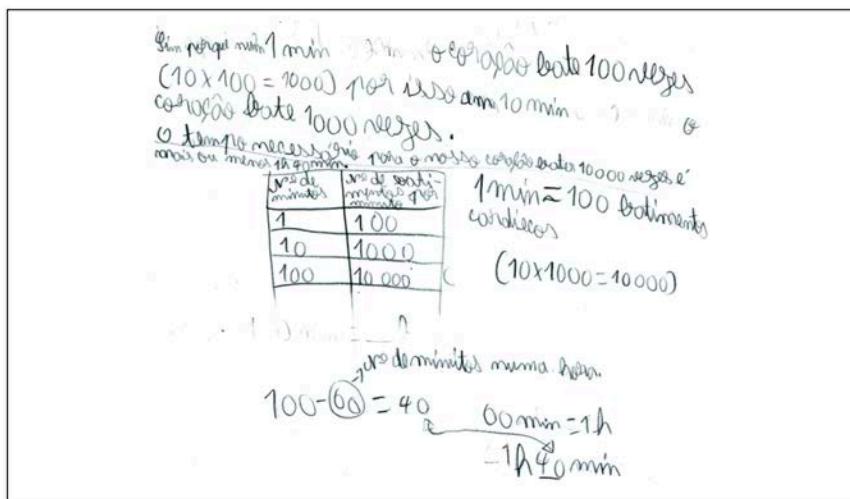 Sim porque num 1 min o coração bate 100 vezes
(10 x 100 = 1000) por isso em 10 min o
coração bate 1000 vezes.
O tempo necessário para o nosso coração bater 10000 vezes é
mais ou menos 1h 40min.
nº de minutos nº de bati-mentos por minuto
1 100
10 1000
100 10 000
1 min = 100 batimentos
cardiecos
(10x1000=10000)
nº de minutos numa hora.
100-60=40
60 min = 1h
1h 40 min